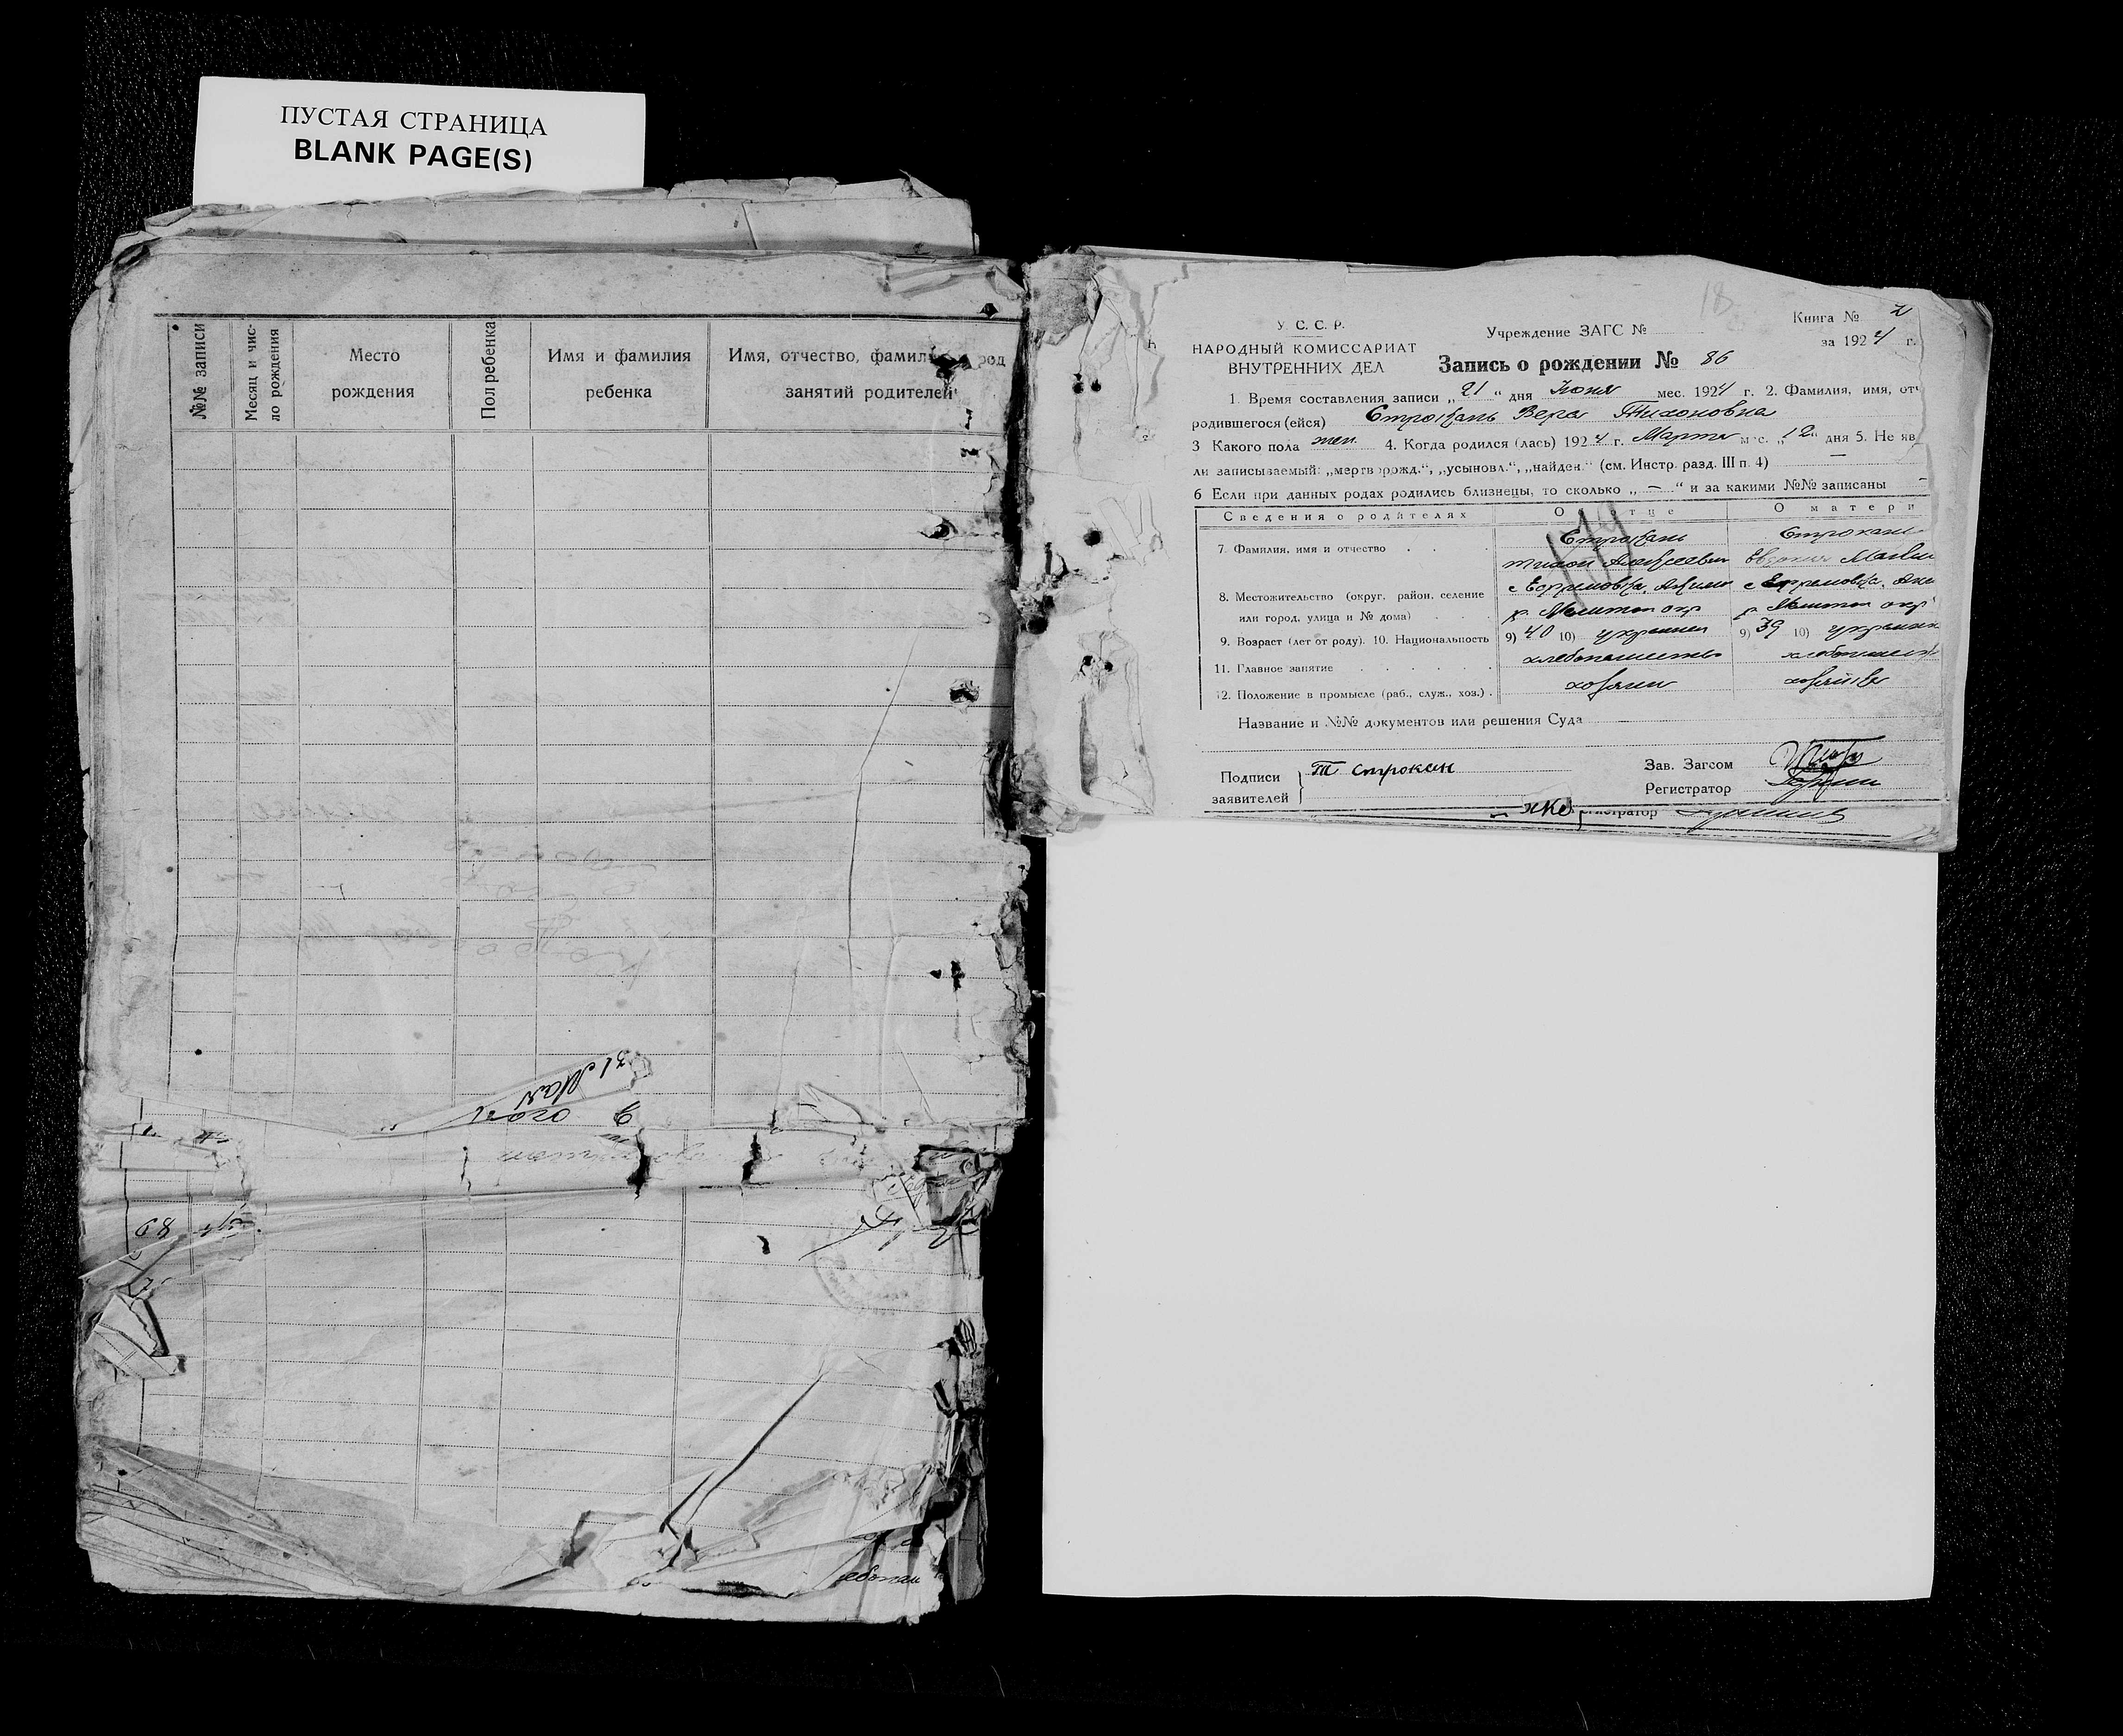 ПУСТАЯ СТРАНИЦА
BLANK PAGE(S)
№№ записи
Месяц и число рождения
Место рождения
Пол ребенка
Имя и фамилия ребенка
Имя, отчество, фамил род
занятий родителей
31 Мая
89
У. С. С. Р.
НАРОДНЫЙ КОМИССАРИАТ
ВНУТРЕННИХ ДЕЛ
Учреждение ЗАГС №
18
Книга № 2
за 1924 г.
Запись о рождении № 86
1. Время составления записи „21“ дня Июня мес. 1924 г. 2. Фамилия, имя, отч
родившегося (ейся) Строкань Вера Тихоновна
3 Какого пола жен. 4. Когда родился (лась) 1924 г. Марта мес. „12“ дня 5. Не яв
ли записываемый: „мертворожд.“, „усыновл.“, „найден.“ (см. Инстр. разд. III п. 4) —
6 Если при данных родах родились близнецы, то сколько „—“ и за какими №№ записаны —
Сведения о родителях О отце О матери
7. Фамилия, имя и отчество Строкань Строкань
Тихон Алексеевич
8. Местожительство (округ, район, селение с Ефремовка, с Ефремовка,
или город, улица и № дома) р. Мелитоп окр р. Мелитоп окр
9. Возраст (лет от роду). 10. Национальность 9) 40 10) украинец 9) 39 10) украинк
11. Главное занятие хлебопашество хлебопашест
12. Положение в промысле (раб., служ., хоз.) хозяин хозяйка
Название и №№ документов или решения Суда
Подписи
заявителей
Т Строкан
Зав. Загсом
Регистратор
гистратор